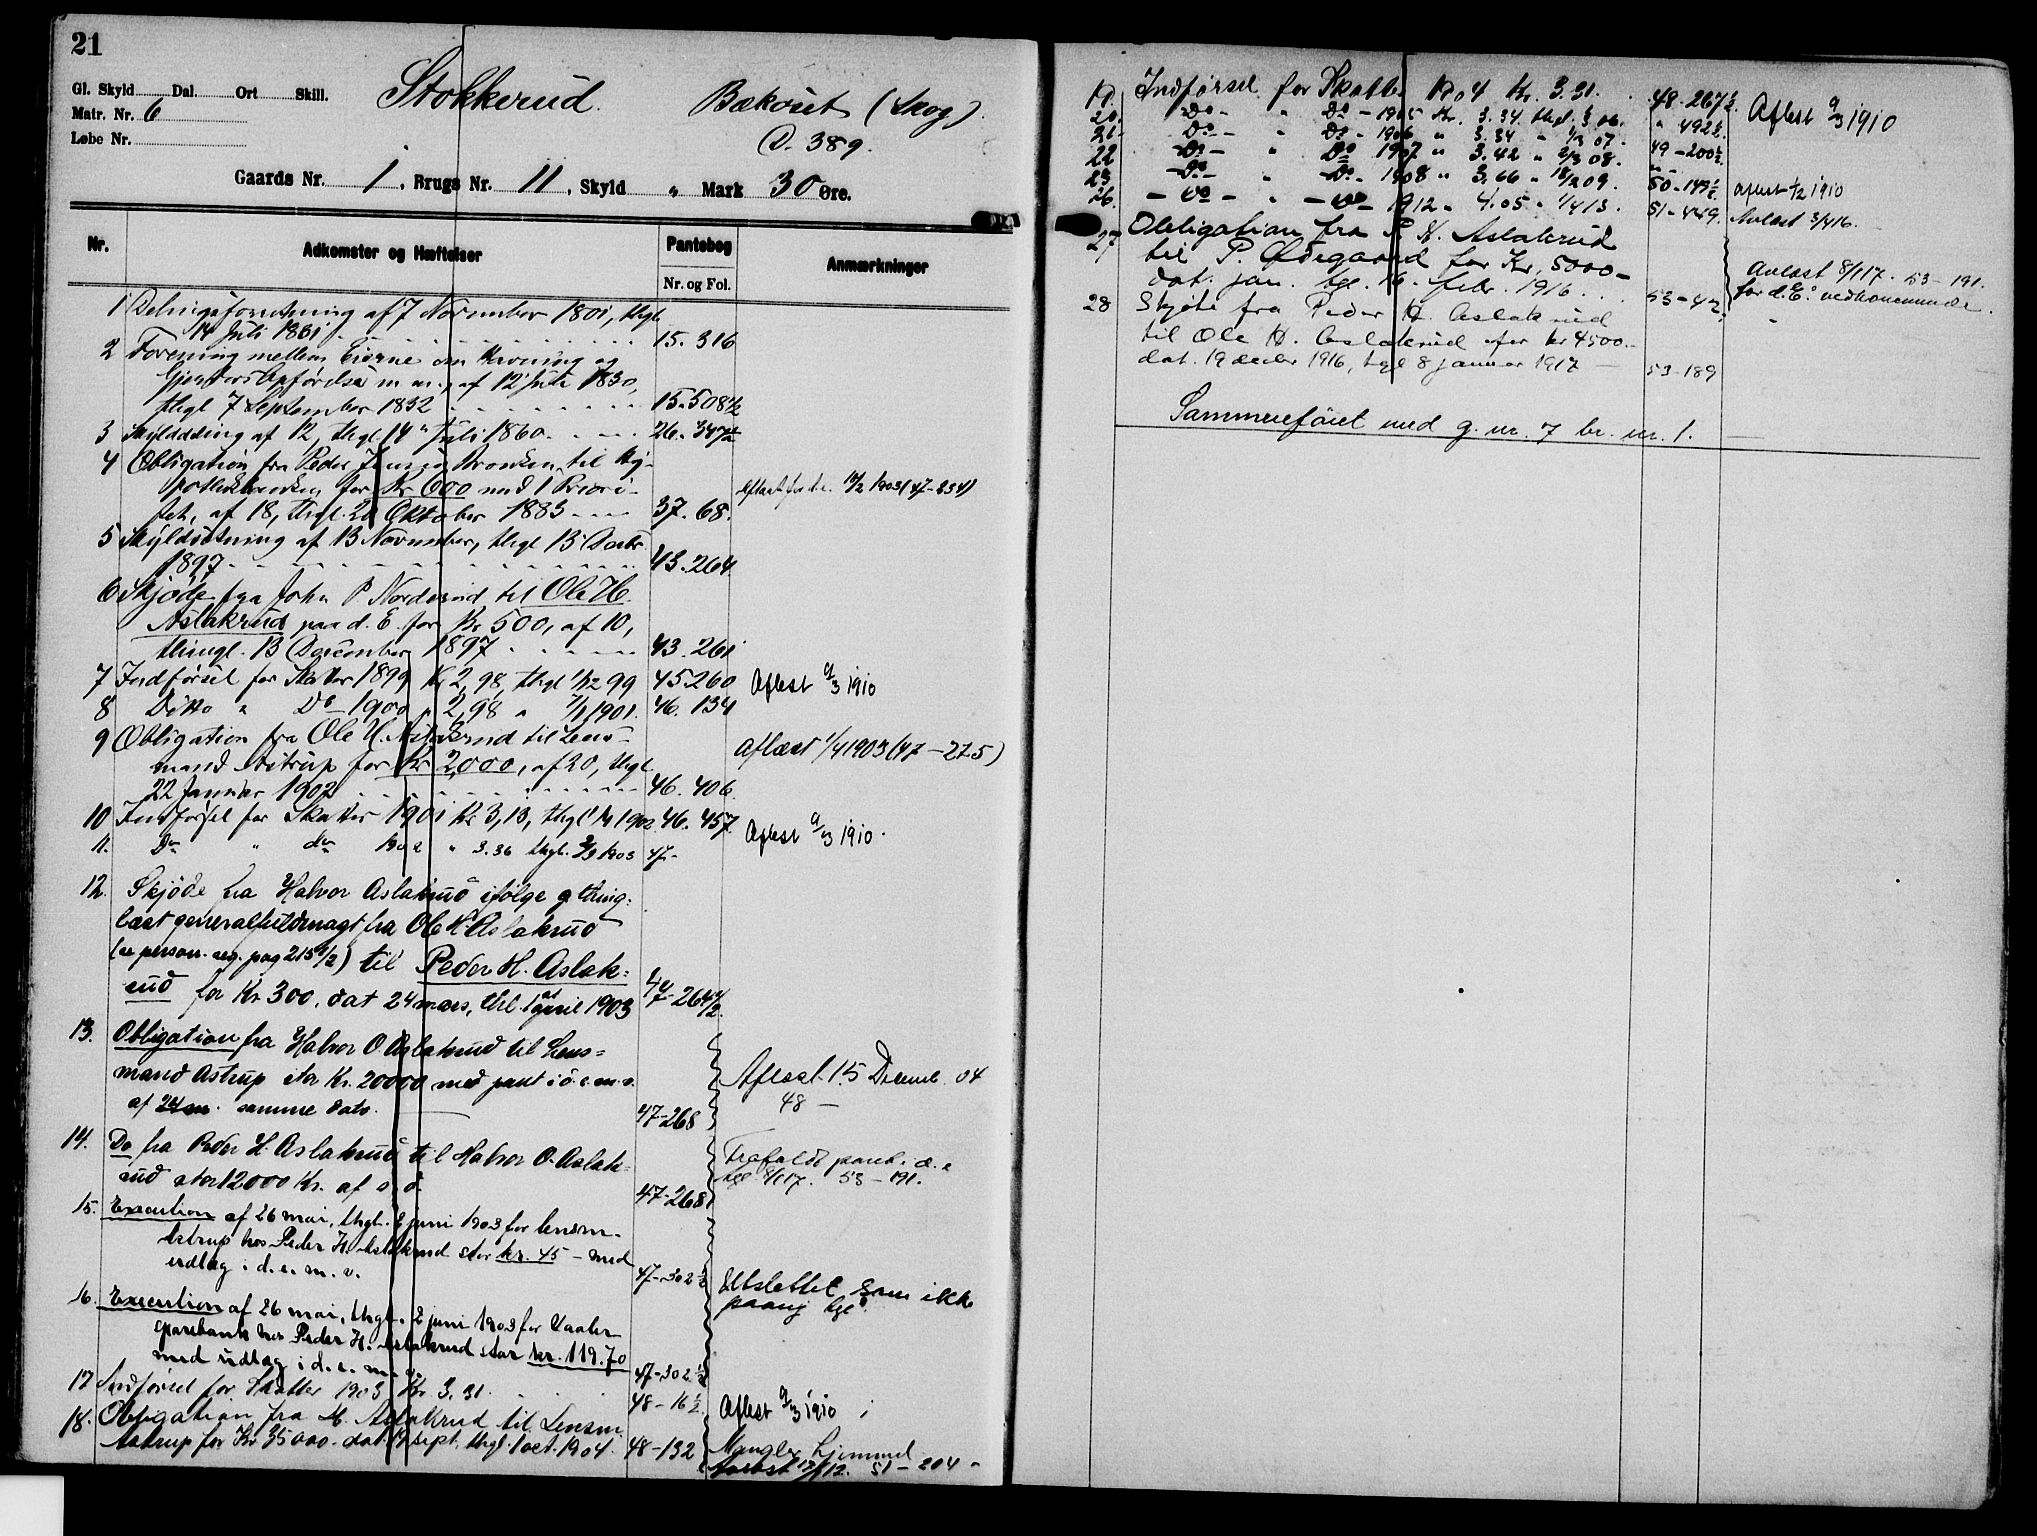 21
Gl. Skyld Dal. Ort Skill.
Matr. Nr. 6
Løbe Nr.
Stokkerud. Bækvset (Skog).
D. 389.
Gaards Nr. 1, Brugs Nr. 11, Skyld " Mark 30 Øre.
Nr. Adkomster og Hæftelser Pantebog Anmærkninger
Nr. og Fol.
1 Delningsforretning af 7 November 1801, thgl.
14 Juli 1831 15. 316
2 Forening mellem Eierne om Havning og
Gjerders Opførelse m. m., af 12 Juli 1830,
thgl 7 September 1832 15. 508 1/2
3 Skylddeling af 12, thgl 14 Juli 1860. 26. 347
4 Obligation fra Peder Jensen til Hy-
pothekbanken for Kr 600 med 1 Priori-
tet, af 18, thgl. 20 Oktober 1883 37. 68.
Aflæst for d. e. 14/2 1903 (47-234)
5 Skyldsetning af 13 November, thgl 13 Decbr
1897 43. 264
6 Skjøde fra John P Norderud til Ole H.
Aslakrud paa d. E. for Kr 500, af 10,
thingl. 13 December 1897 43. 261
7 Indførsel for Skatter 1899 Kr 2,98, thgl 1/12 99 45. 260 Aflæst 9/3 1910
8 Ditto " Do 1900 " 2,98 " 2/1 1901. 46. 134
9 Obligation fra Ole H. Aslakrud til Lens-
mand Astrup for Kr 2,000, af 20, thgl.
22 Januar 1902 46. 406.
Aflæst 1/4 1903 (47-275)
10 Indførsel for Skatter 1901 Kr 3,13, thgl 1/4 1902 46. 457 Aflæst 9/3 1910.
11. Do " do 1902 " 3.36 thgl. 3/3 1903 47-
12. Skjøde fra Halvor Aslakrud ifølge gl thing-
læst generalfuldmagt fra Ole H. Aslakrud
(se person. reg. pag 215 1/2) til Peder H. Aslak-
rud for Kr 300, dat 24 mars, thl. 1st april 1903 47-264 1/2.
13. Obligation fra Halvor O Aslakrud til Lens-
mand Astrup stor Kr. 20000 med pant i d. e. m. v.
af 24 m. samme dato. 47-268
Aflæst 15 Decemb. 04
48 -
14. Do fra Peder H. Aslakrud til Halvor O. Aslak-
rud stor 12000 Kr. af s. d. 47-268
Frafaldt pant i d. e
tgl. 8/1 17. 53-191.
15. Execution af 26 mai, thgl. 2 juni 1903 for lensm.
Astrup hos Peder H. Aslakrud stor kr. 45 - med
udlæg i d. e. m. v. 47-302 1/2
Udslettet som ikke
paany tgl.
16. Execution af 26 mai, thgl. 2 juni 1903 for Vaaler
sparebank hos Peder H. Aslakrud stor kr. 119.70
med udlæg i d. e. m. v. 47-302 1/2
17 Indførsel for Skatter 1903 Kr 3.31. 48-16 1/2 Aflæst 9/3 1910
18. Obligation fra H. Aslakrud til Lensm.
Astrup for Kr 35000. dat 19 sept. thgl 1 oct. 1904. 48-132
Mangler hjemmel
Aflæst 12/12. 51-204
19. Indførsel for Skatter 1904 Kr. 3.31. 48-267 1/2 Aflest 9/3 1910
20. Do - " Do - 1905 Kr. 3.34 thgl. 06. " 492 1/2
21. Do - " Do - 1906 " 3.34 " 1/3 07. 49-200 1/2
22 Do - " Do 1907 " 3.42 " 2/3 08.
23 Do - " Do - 1908 " 3.66 " 18/2 09. 50-149 1/2 aflest 1/2 1910
26. - Do - " - Do - 1912 " 4.05 " 1/4 13. 51-449. Avlæst 3/4 16.
27 Obligation fra P. H. Aslakrud
til P. Ødegaard for Kr. 5000-
dat. jan. tgl. 16. febr. 1916 53-42
Avlæst 8/1 17. 53-191.
for d. E. vedkommende.
28 Skjøte fra Peder H. Aslakrud
til Ole H. Aslakrud for kr 4500.-
dat. 19 decbr 1916, tgl 8 januar 1917 53-189
Sammenføiet med g. nr. 7 br. nr. 1.